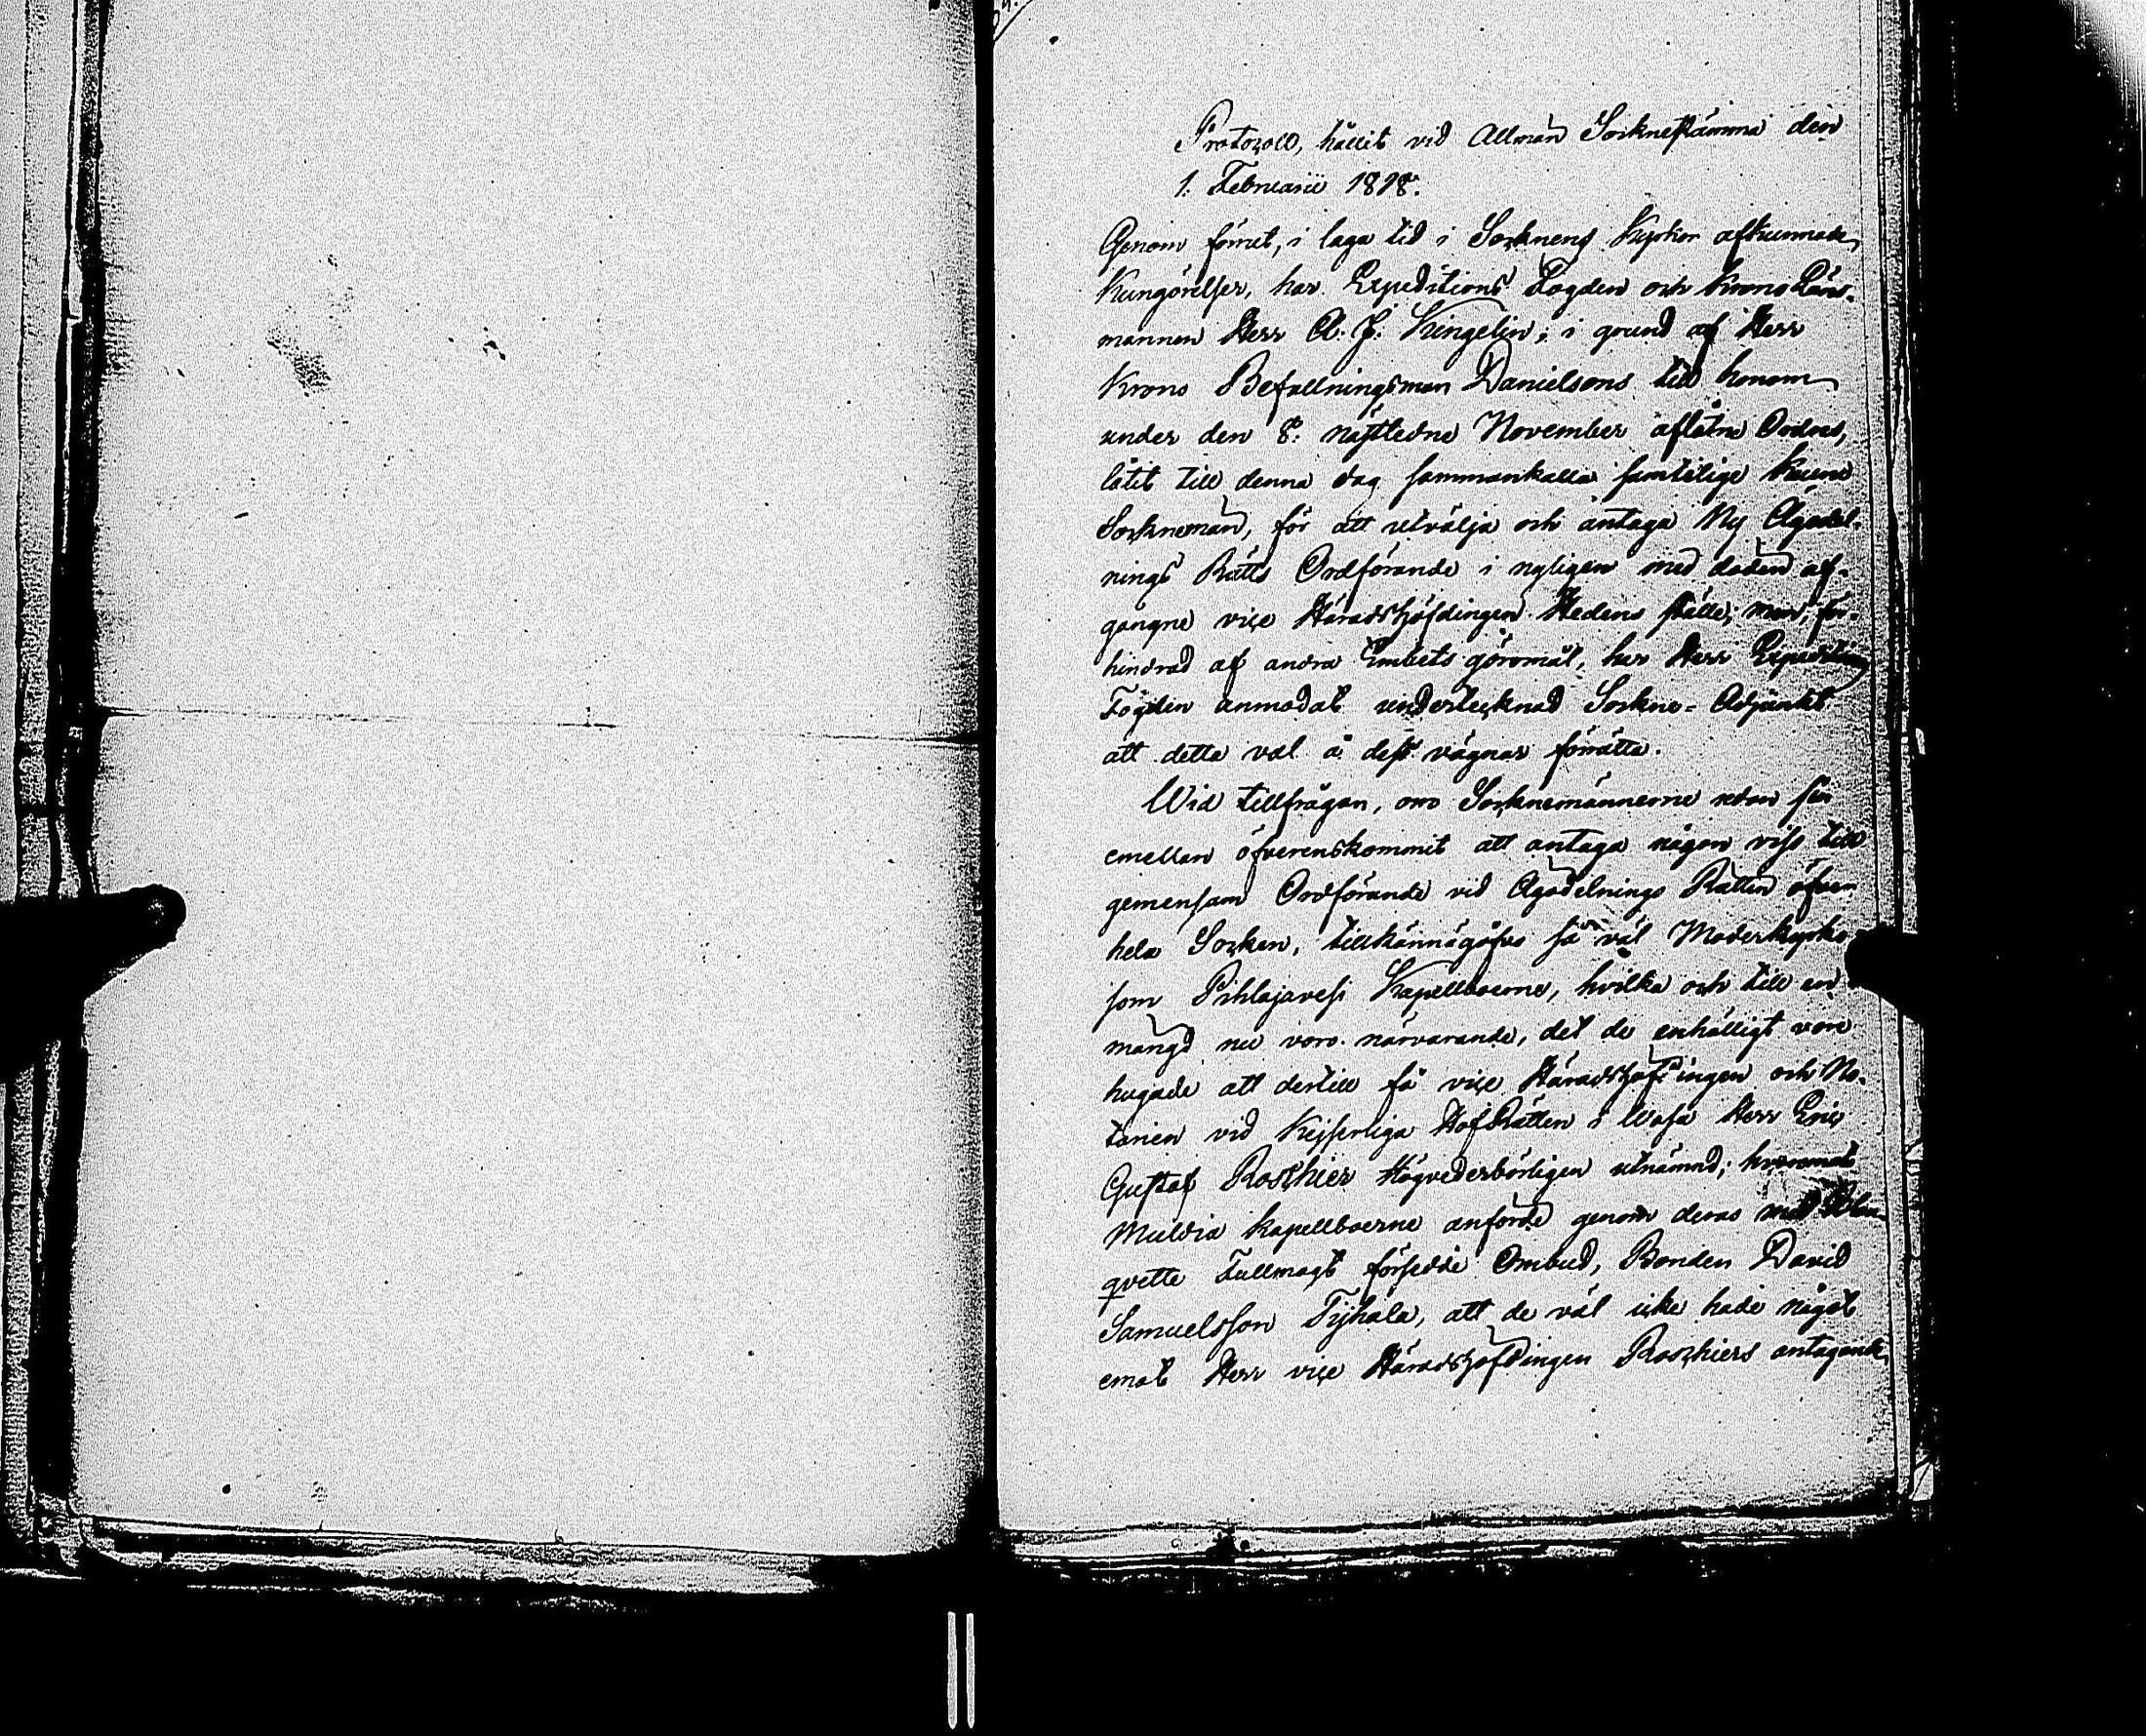 Protocoll, hållit vid Allmän Sockneståmma den
1. Februarii 1828.
Genom förut, i laga tid i Socknens Kyrkor afkunnade
Kungörelser, har Expeditions Fogden och Krono Läns-
mannen Herr A. J. Kingelin, i grund af Herr
Krono Befallningsman Danielsons till honom
under den 8. nästledne November aflåtne Ordres,
låtit till denna dag sammankalla samtelige Keuru
Sockneman, för att utvälja och antaga Ny Ägodel-
nings Rätts Ordförande i nyligen med döden af-
gångne viçe Häradshöfdingen Hedens ställe; men, för-
hindrad af andra Embets göromål, har Herr Expeditions
Fogden anmodat undertecknad Sockne-Adjunkt
att detta val å dess vägnar förrätta.
Wid tillfrågan, om Socknemännerne redan sin
emellan öfverenskommit att antaga någon viss till
gemensam Ordförande vid Ägodelnings Rätten öfver
hela Socken, tillkännagåfvo så väl Moderkyrko
som Pihlajavesi Kapellboerne, hvilka och till en
mängd nu voro närvarande, det de enhälligt vore
hugade att dertill få viçe Häradshöfdingen och No-
tarien vid Kejserliga HofRätten i Wasa Herr Eriç
Gustaf Roschier Högvederbörligen utnämnd; hvaremot
Multia kapellboerne anförde genom deras med Blan-
qvette Fullmagt försedde Ombud, Bonden David
Samuelsson Tyhala, att de väl icke hade något
emot Herr viçe Häradshöfdingen Roschiers antagande